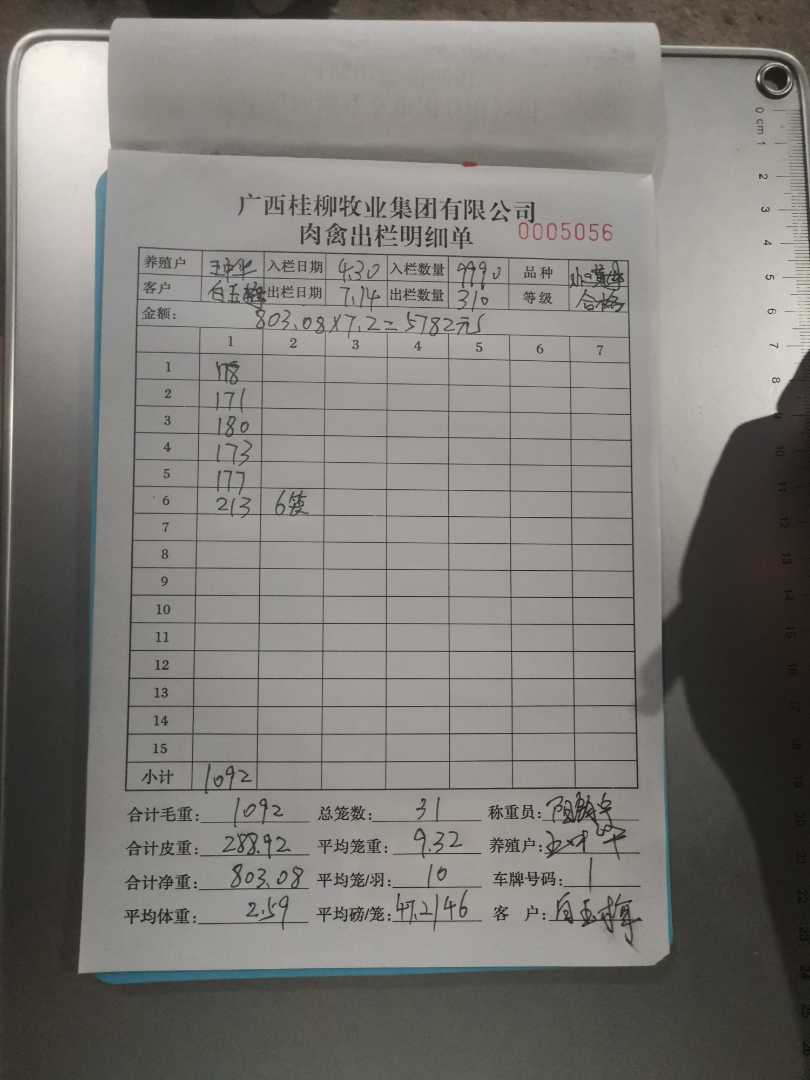 广西桂柳牧业集团有限公司
肉禽出栏明细单 0005056
养殖户 入栏日期 4.30 入栏数量 9990 品种
客户 白玉梅 出栏日期 7.14 出栏数量 310 等级 合格
金额: 803.08×7.2=5782元
1 2 3 4 5 6 7
1 178
2 171
3 180
4 173
5 177
6 213 6笼
7
8
9
10
11
12
13
14
15
小计 1092
合计毛重: 1092 总笼数: 31 称重员:
合计皮重: 288.92 平均笼重: 9.32 养殖户:
合计净重: 803.08 平均笼/羽: 10 车牌号码: 1
平均体重: 2.59 平均磅/笼: 47.2/46 客户: 白玉梅
0 cm 1
2
3
4
5
6
7
8